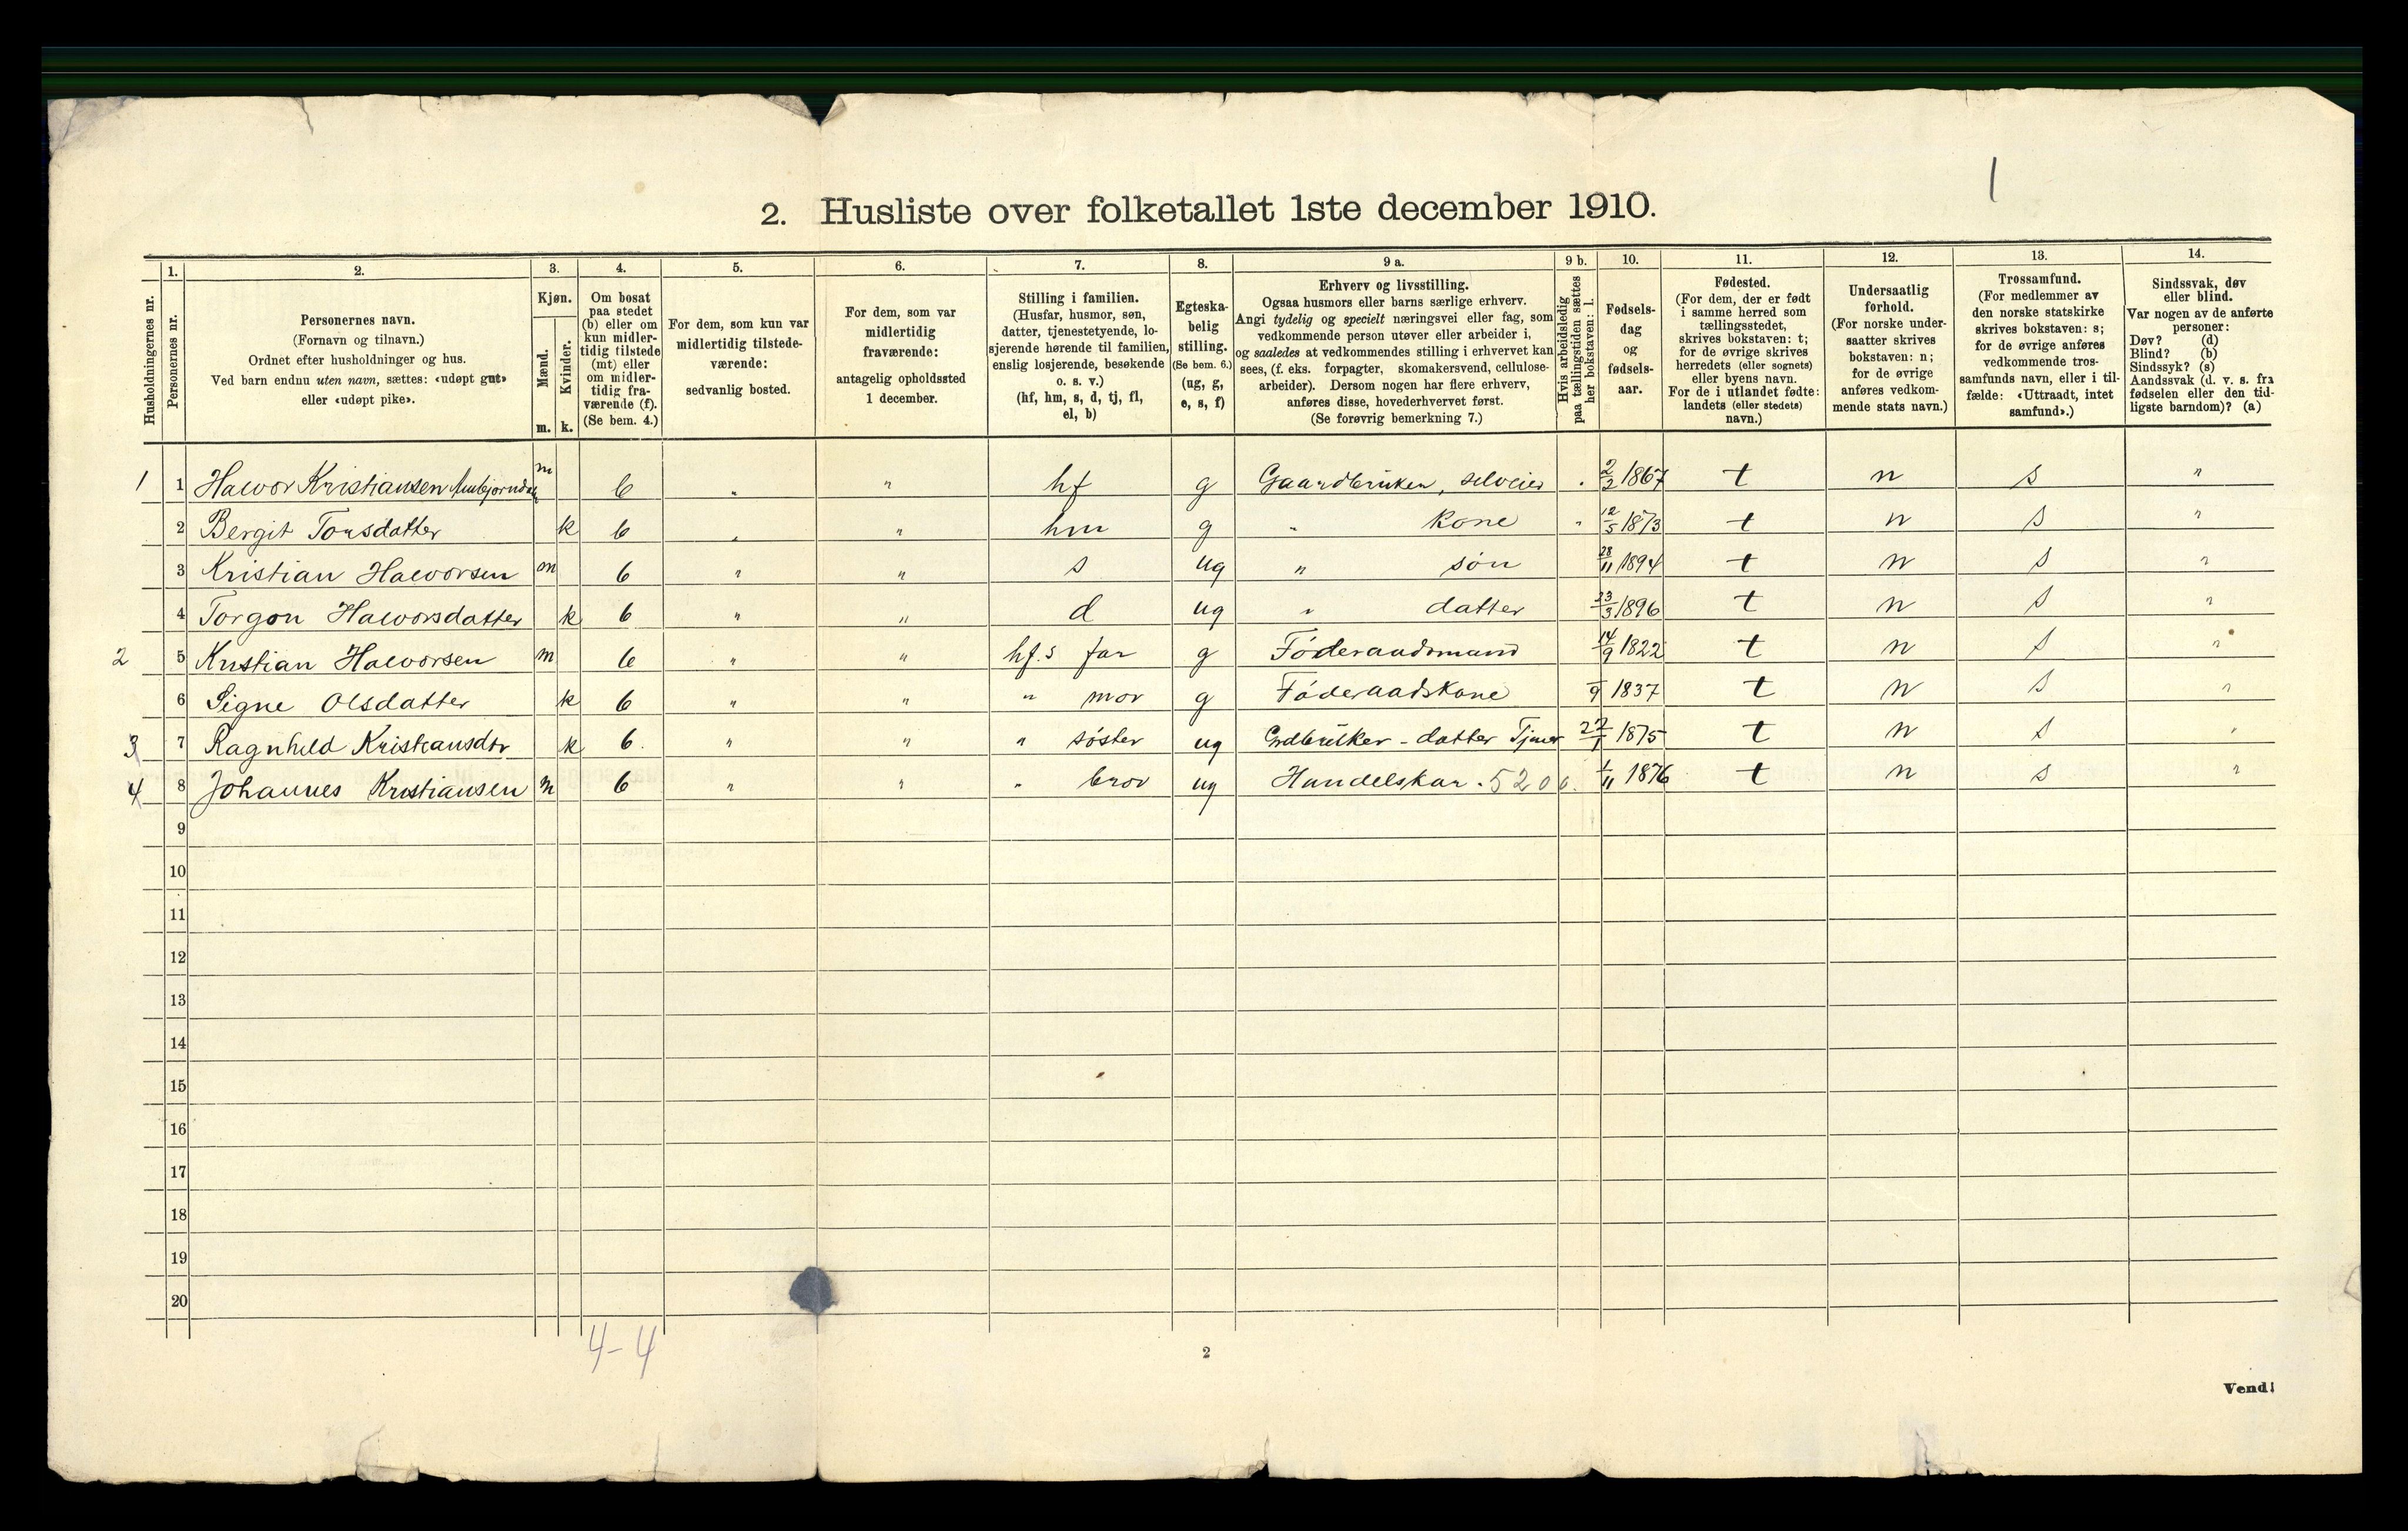 1
2. Husliste over folketallet 1ste december 1910.
Husholdningernes nr.
1.
Personernes nr.
2.
Personernes navn.
(Fornavn og tilnavn.)
Ordnet efter husholdninger og hus.
Ved barn endnu uten navn, sættes: «udøpt gut»
eller «udøpt pike».
3.
Kjøn.
Mænd.
Kvinder.
m. k.
4.
Om bosat
paa stedet
(b) eller om
kun midler-
tidig tilstede
(mt) eller
om midler-
tidig fra-
værende (f).
(Se bem. 4.)
5.
For dem, som kun var
midlertidig tilstede-
værende:
sedvanlig bosted.
6.
For dem, som var
midlertidig
fraværende:
antagelig opholdssted
1 december.
7.
Stilling i familien.
(Husfar, husmor, søn,
datter, tjenestetyende, lo-
sjerende hørende til familien,
enslig losjerende, besøkende
o. s. v.)
(hf, hm, s, d, tj, fl,
el, b)
8.
Egteska-
belig
stilling.
(Se bem. 6.)
(ug, g,
e, s, f)
9 a.
Erhverv og livsstilling.
Ogsaa husmors eller barns særlige erhverv.
Angi tydelig og specielt næringsvei eller fag, som
vedkommende person utøver eller arbeider i,
og saaledes at vedkommendes stilling i erhvervet kan
sees, (f. eks. forpagter, skomakersvend, cellulose-
arbeider). Dersom nogen har flere erhverv,
anføres disse, hovederhvervet først.
(Se forøvrig bemerkning 7.)
9 b.
Hvis arbeidsledig
paa tællingstiden sættes
her bokstaven: l.
10.
Fødsels-
dag
og
fødsels-
aar.
11.
Fødested.
(For dem, der er født
i samme herred som
tællingsstedet,
skrives bokstaven: t;
for de øvrige skrives
herredets (eller sognets)
eller byens navn.
For de i utlandet fødte:
landets (eller stedets)
navn.)
12.
Undersaatlig
forhold.
(For norske under-
saatter skrives
bokstaven: n;
for de øvrige
anføres vedkom-
mende stats navn.)
13.
Trossamfund.
(For medlemmer av
den norske statskirke
skrives bokstaven: s;
for de øvrige anføres
vedkommende tros-
samfunds navn, eller i til-
fælde: «Uttraadt, intet
samfund».)
14.
Sindssvak, døv
eller blind.
Var nogen av de anførte
personer:
Døv? (d)
Blind? (b)
Sindssyk? (s)
Aandssvak (d. v. s. fra
fødselen eller den tid-
ligste barndom)? (a)
1 1 Halvor Kristiansen m b " " hf g Gaardbruker, selveier " 2/2 1867 t n s "
2 Bergit Torsdatter k b " " hm g " Kone " 12/5 1873 t n s "
3 Kristian Halvorsen m b " " s ug " søn 28/11 1894 t n s "
4 Torgon Halvorsdatter k b " " d ug " datter 23/3 1896 t n s "
2 5 Kristian Halvorsen m b " " hf.s far g Føderaadsmand 14/9 1822 t n s "
6 Signe Olsdatter k b " " " mor g Føderaadskone /9 1837 t n s "
3 7 Ragnhild Kristiansdtr k b " " " søster ug Grdbruker-datter Tjener 27/1 1875 t n s "
4 8 Johannes Kristiansen m b " " " bror ug Handelskar. 5200. 1/11 1876 t n s "
9
10
11
12
13
14
15
16
17
18
19
20
4-4
2
Vend!